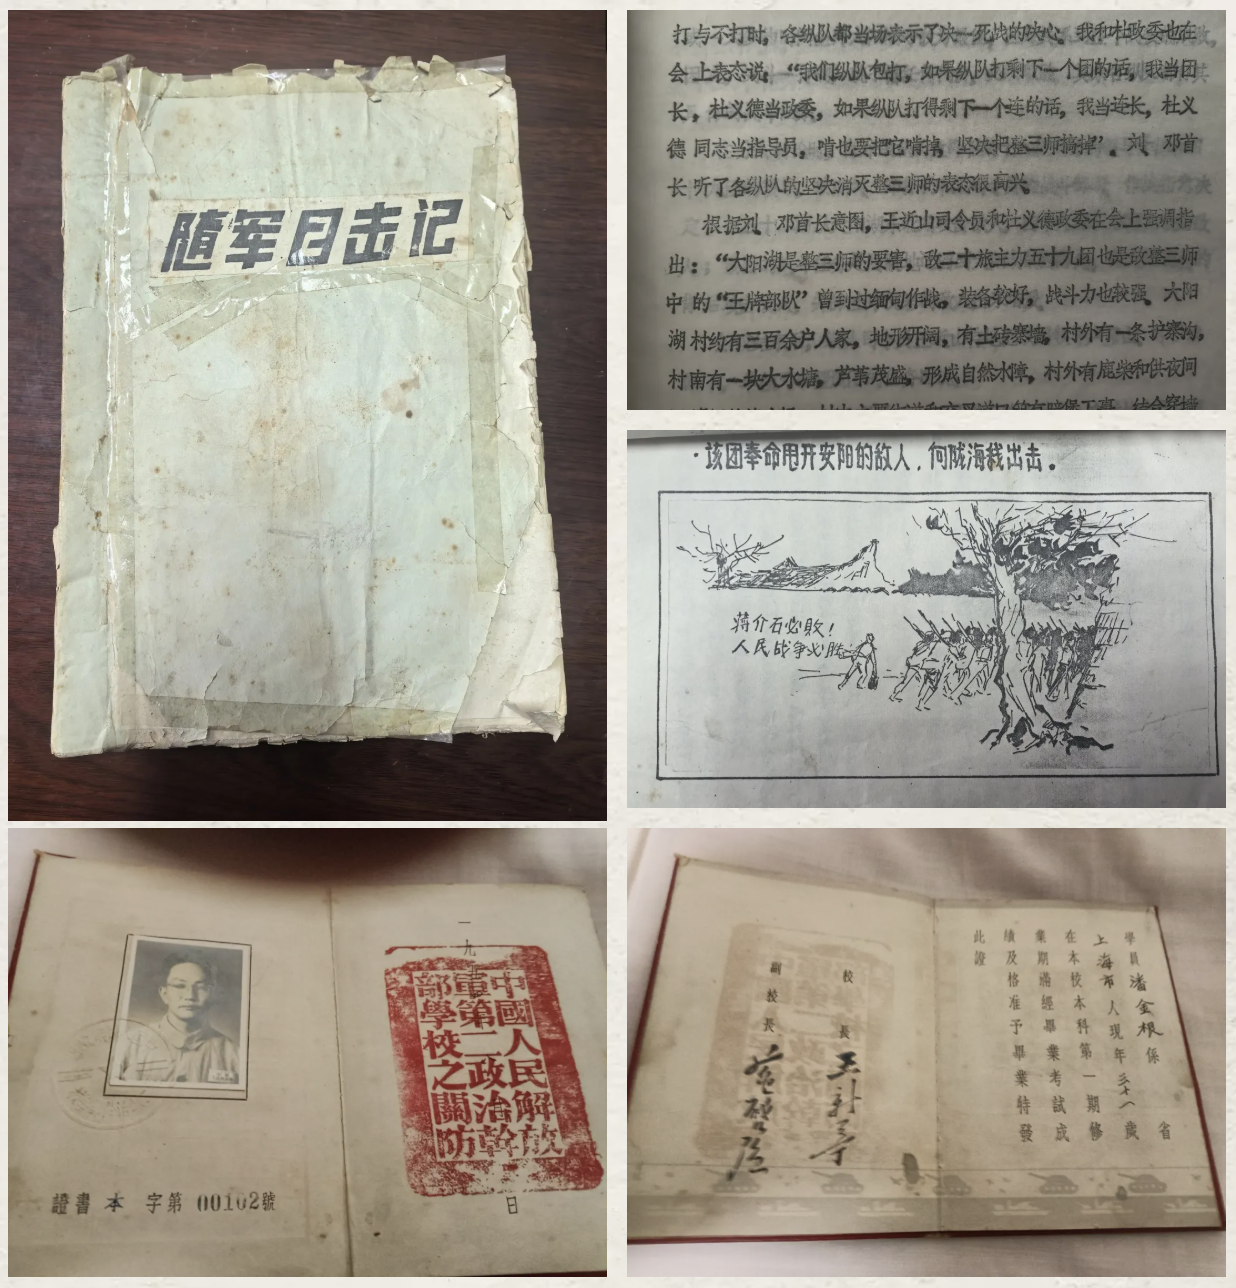 随军目击记
打与不打时，各纵队都当场表示了决一死战的决心。我和杜政委也在
会上表态说：“我们纵队包打，如果纵队打剩下一个团的话，我当团
长，杜义德当政委，如果纵队打得剩下一个连的话，我当连长，杜义
德同志当指导员，啃也要把它啃掉，坚决把整三师搞掉”。刘、邓首
长听了各纵队的坚决消灭整三师的表态很高兴。
根据刘、邓首长意图，王近山司令员和杜义德政委在会上强调指
出：“大阳湖是整三师的要害，敌二十旅主力五十九团也是敌整三师
中的“王牌部队”曾到过缅甸作战，装备较好，战斗力也较强。大阳
湖村约有三百余户人家，地形开阔，有土砖寨墙，村外有一条护寨沟，
村南有一块大水塘，芦苇茂盛，形成自然水障，村外有鹿柴和供夜间
·该团奉命甩开安阳的敌人，向陇海线出击。
蒋介石必败！
人民战争必胜
一九
中國人民解放
軍第二政治幹
部學校之關防
日
證書本字第00102號
學員潘金根係 省
上海市人現年三十八歲
在本校本科第一期修
業期滿經畢業考試成
績及格准予畢業特發
此證
校長
副校長